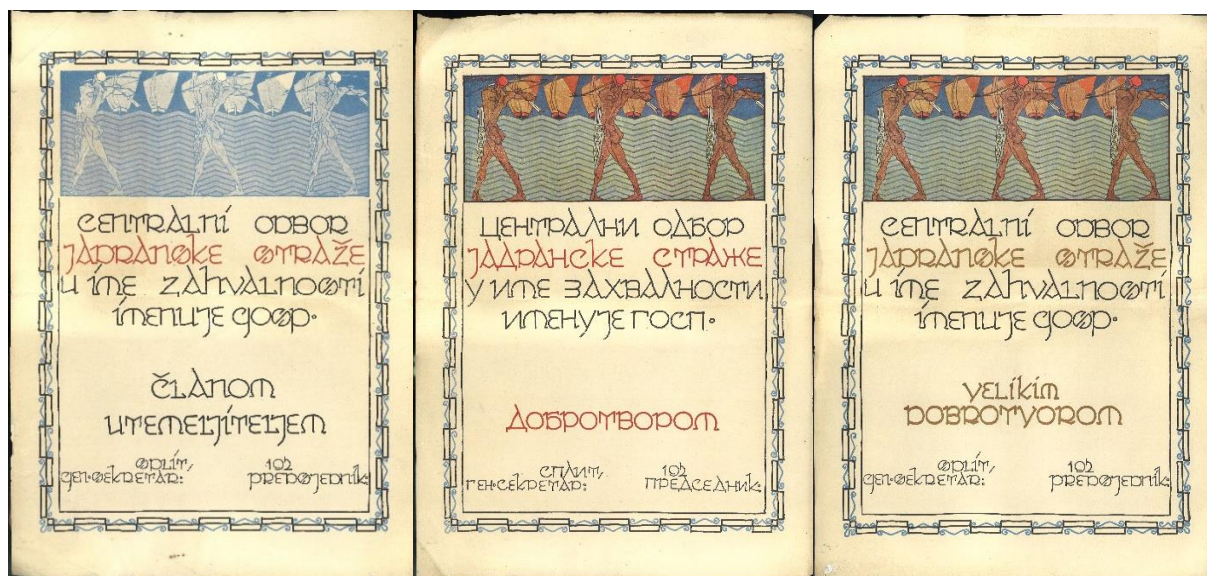 CENTRALNI ODBOR
JADRANSKE STRAŽE
U IME ZAHVALNOSTI
IMENUJE GOSP.
ČLANOM
UTEMELJITELJEM
SPLIT, 192
GEN. SEKRETAR: PREDSJEDNIK:
ЦЕНТРАЛНИ ОДБОР
ЈАДРАНСКЕ СТРАЖЕ
У ИМЕ ЗАХВАЛНОСТИ
ИМЕНУЈЕ ГОСП.
ДОБРОТВОРОМ
СПЛИТ, 192
ГЕН. СЕКРЕТАР: ПРЕДСЕДНИК:
CENTRALNI ODBOR
JADRANSKE STRAŽE
U IME ZAHVALNOSTI
IMENUJE GOSP.
VELIKIM
DOBROTVOROM
SPLIT, 192
GEN. SEKRETAR: PREDSJEDNIK: